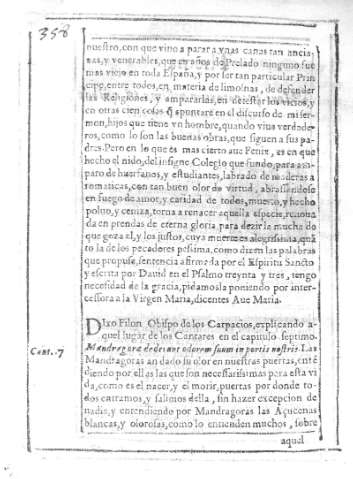 358
nuestro, con que vino a parar a vnas canas tan ancia-
nas, y venerables, que en años de Prelado ninguno fue
mas viejo en toda España, y por ser tan particular Prin
cipe, entre todos, en materia de limosnas, de defender
las Religiones, y ampararlas, en detestar los vicios, y
en otras cien cosas q̃ apuntarè en el discurso de mi ser-
mon, hijos que tiene vn hombre, quando viue verdade-
ros, como lo son las buenas obras, que siguen a sus pa-
dres. Pero en lo que es mas cierto aue Fenix, es en que
hecho el nido, del insigne Colegio que fundò, para am-
paro de huerfanos, y estudiantes, labrado de maderas a
romaticas, con tan buen olor de virtud, abrasandose
en fuego de amor, y caridad de todos, muerto, y hecho
poluo, y ceniza, torna a renacer aquella especie, renoua
da en prendas de eterna gloria, para dezir la mucha do
que goza el, y los justos, cuya muerte es alegrissima, quã
to la de los pecadores pessima, como dizen las palabras
que propuse, sentencia afirmada por el Espiritu Sancto
y escrita por Dauid en el Psalmo treynta y tres, tengo
necessidad de la gracia, pidamosla poniendo por inter-
cessora a la Virgen Maria, dicentes Aue Maria.
DIxo Filon Obispo de los Carpacios, explicando a-
quel lugar de los Cantares en el capitulo septimo.
Cant. 7 Mandragoræ dederunt odorem suum in portis nostris. Las
Mandragoras an dado su olor en nuestras puertas, entẽ
diendo por ellas las que son necessarissimas para esta vi
da, como es el nacer, y el morir, puertas por donde to-
dos entramos, y salimos della, sin hazer excepcion de
nadie, y entendiendo por Mandragoras las Açucenas
blancas, y olorosas, como lo entienden muchos, sobre
aquel